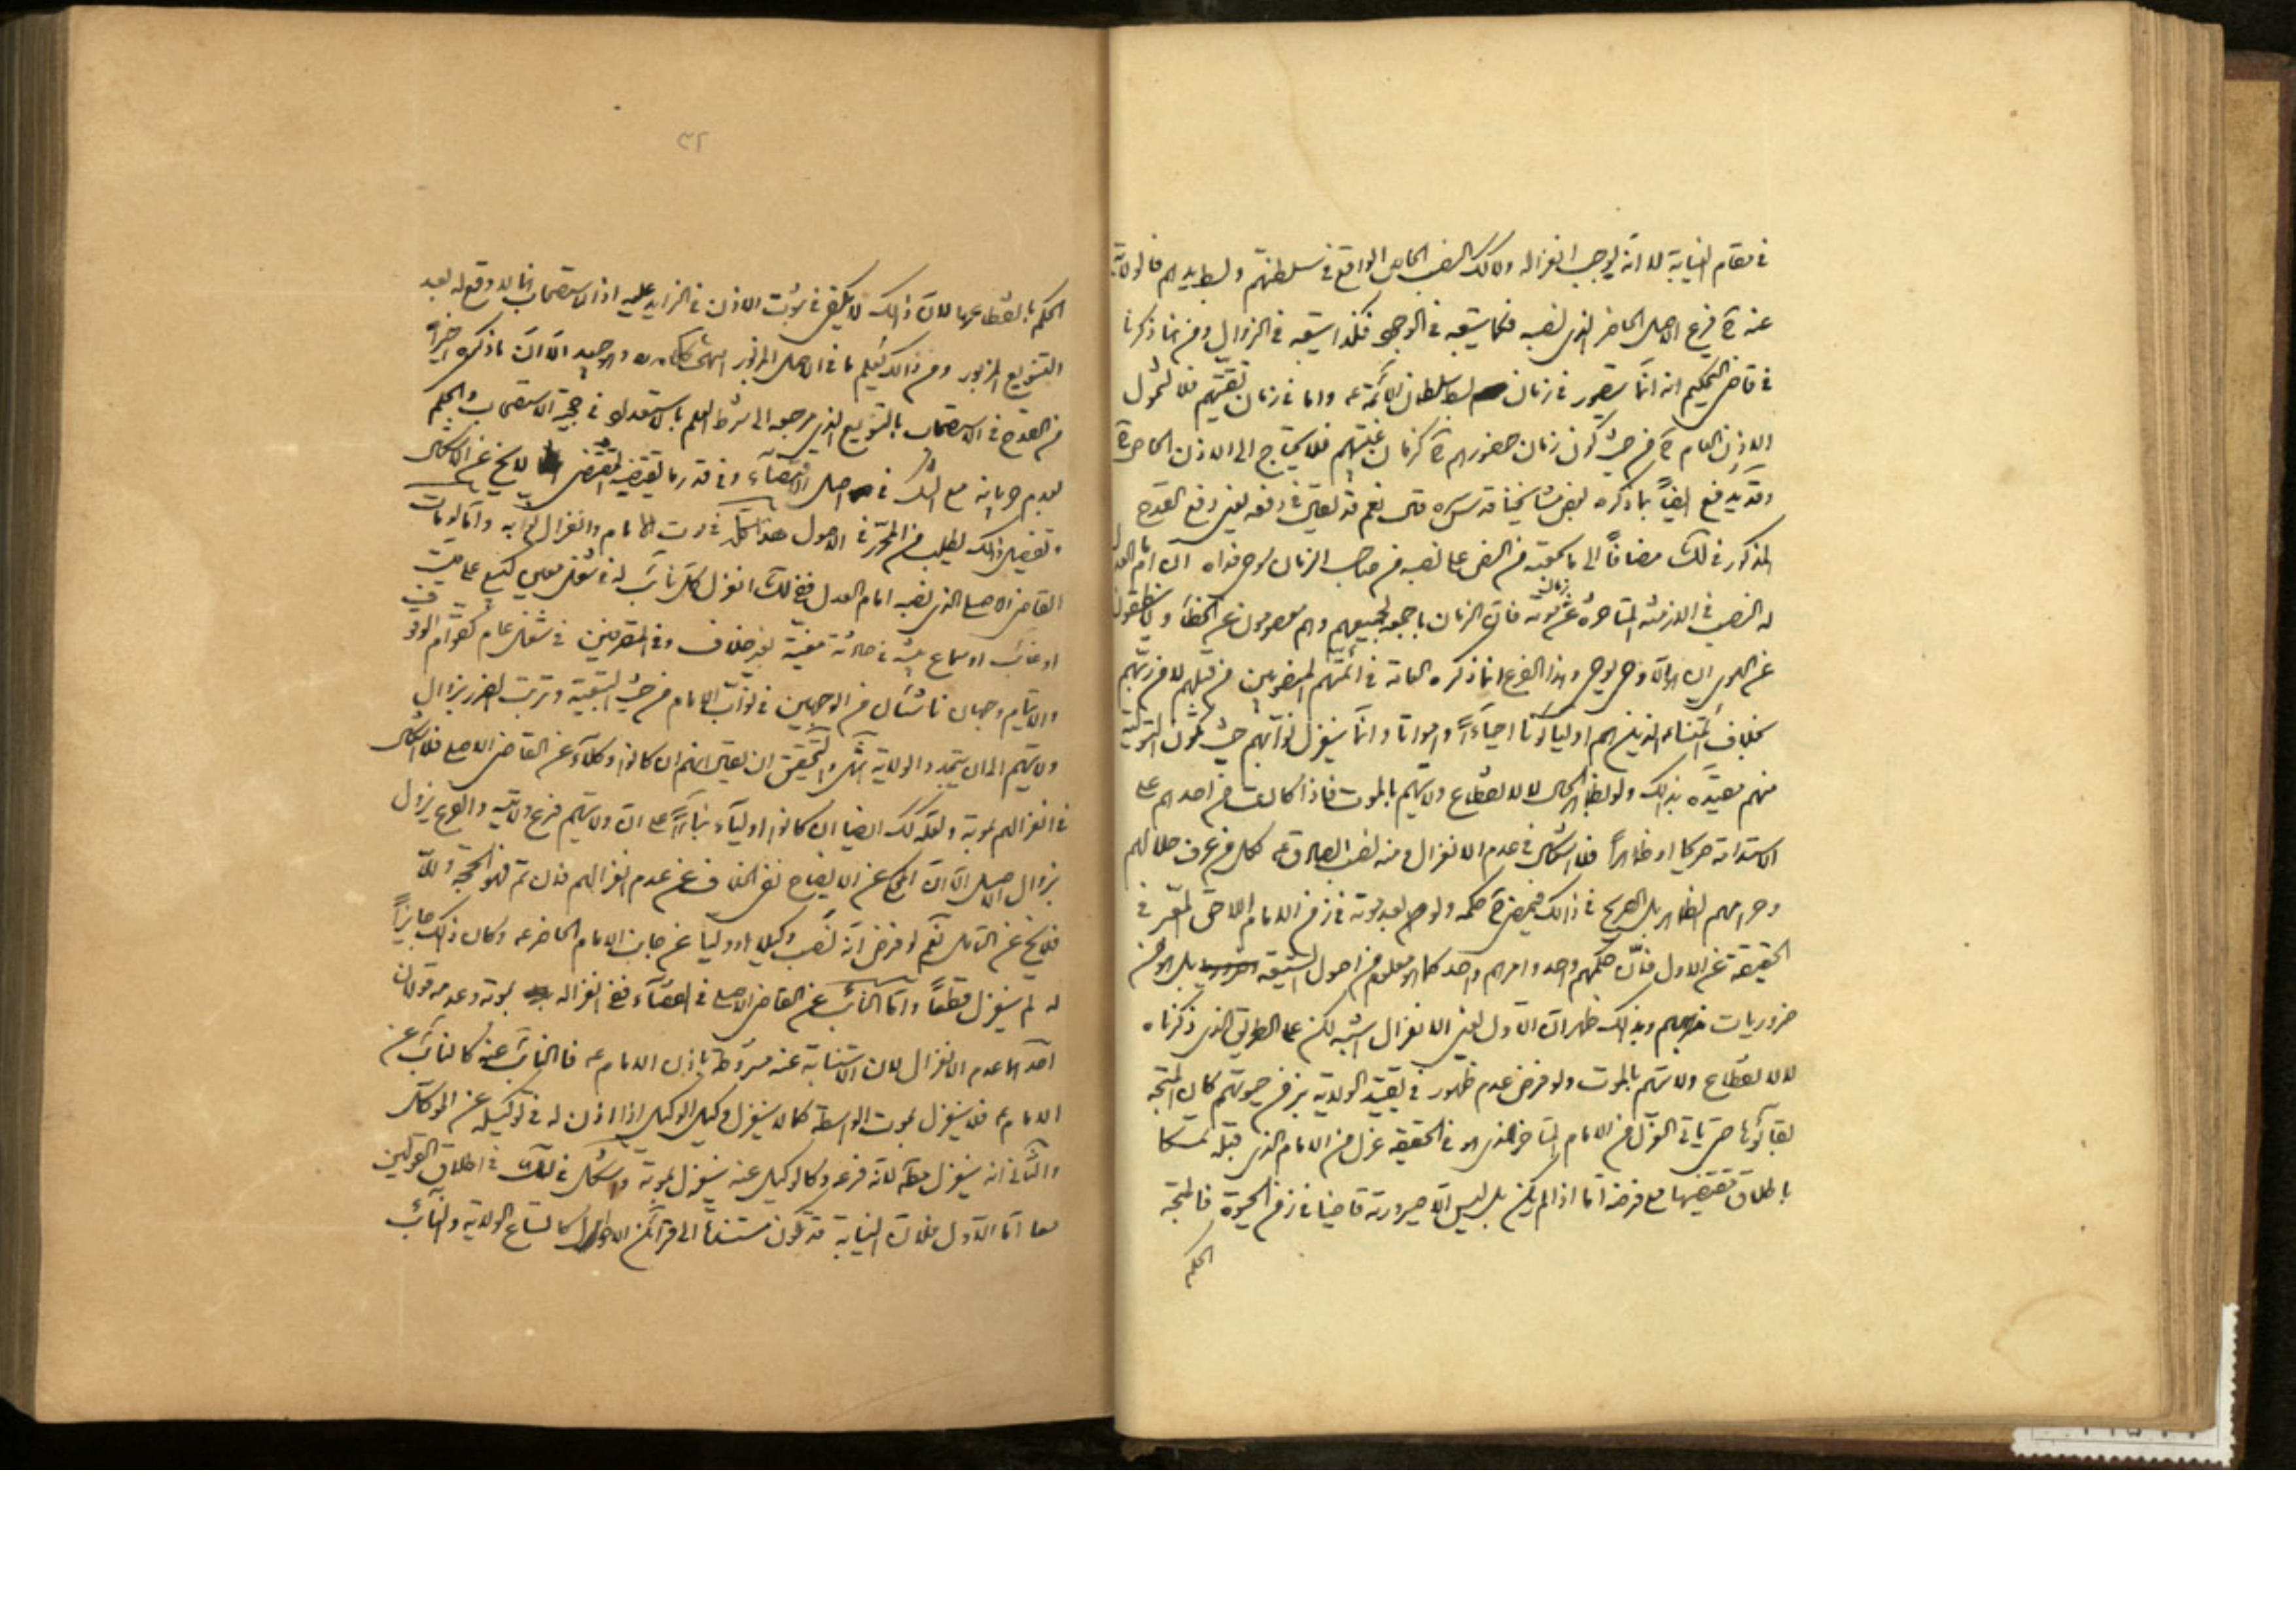 في مقام النيابة لا انه يوجب انعزاله وكذلك النصب الخاص الواقع في سلطنتهم وبسط ايديهم فالولاية
عنه ع فرع الاصل الحاضر الذي نصبه فكما يتبعه في الوجود فكذا يتبعه في الزوال ومن هنا ذكرنا
في قاضي التحكيم انه انما يتصور في زمان بسط سلطان الائمة ع واما في زمان تقيتهم فلا شمول
الاذن العام ع من حيث كون زمان حضورهم ع كزمان غيبتهم فلا يحتاج الى الاذن الخاص ع
وقد يدفع ايضاً بما ذكره بعض مشايخنا قدس سره قال نعم قد يقال في دفعه يعني دفع القدح
المذكور في ذلك مضافاً الى ما سمعته من النص على نصبه من صاحب الزمان روحي فداه ان امام العدل
له النصب في الازمنة المتأخرة عن زمان موته فان الزمان باجمعه لجميعهم وهم معصومون عن الخطأ ولا ينطقون
عن الهوى ان هو الا وحي يوحى وهذا الفرع انما ذكره العامة في ائمتهم المنصوبين من قبلهم لا من ربهم
بخلاف ائمتنا الذين هم اولياؤنا احياءً وامواتا وانما ينعزل نوابهم حيث تكون التولية
منهم مقيدة بذلك ولو بظاهر الحال لا لانقطاع ولايتهم بالموت فاذا كانت من احدهم على
الاستدامة صريحا او ظاهراً فلا اشكال في عدم الانعزال ومنه نصب الصادق ع لكل من عرف حلالهم
وحرامهم الظاهر بل الصريح في ذلك فيمضي ع حكمه ولو بعد موته في زمن الامام اللاحق المتعبر في
الحقيقة عن الاول فان حكمهم واحد وامرهم واحد كما هو معلوم من اصول الشيعة بل هو من
ضروريات مذهبهم وبذلك ظهر ان الاول يعني الانعزال اشبه لكن على الطريق الذي ذكرناه
لا لانقطاع ولايتهم بالموت ولو فرض عدم ظهور في تقييد الولاية بزمن حيوتهم كان المتجه
بقاؤها حتى ياتي العزل من الامام المتأخر الذي هو في الحقيقة عزل من الامام الذي قبله تمسكا
باطلاق مقتضيها مع فرضه اما اذا لم يكن بل ليس الا صيرورته قاضيا في زمن الحيوة فالمتجه
الحكم
٣٢
الحكم بانقطاعها لان ذلك لا يكفي في ثبوت الاذن في الزايد عليه اذ الاستصحاب لا وقع له بعد
التنويع المزبور ومن ذلك يعلم ما في الاصل المزبور انتهى كلامه وهو جيد الا ان ما ذكره اخيراً
من القدح في الاستصحاب بالتنويع الذي مرجعه الى شرط العلم بالاستعداد في حجية الاستصحاب والحكم
بعدم جريانه مع الشك في اصل الاقتضاء وفي قدر ما يقتضيه المقتضي لا يخ عن الاشكال
وتفصيل ذلك يطلب من المحرر في الاصول هذا كله في موت الامام وانعزال نوابه واما لو مات
القاضي الاصلي الذي نصبه امام العدل ففي ذلك انعزل كل نائب له في شغل معين كبيع على ميت
او غائب او سماع بينة في حادثة معينة بغير خلاف وفي المتصرفين في شغل عام كقوام الوقوف
والايتام وجهان ناشئان من الوجهين في نواب الامام من حيث التبعية وترتب الضرر بزوال
ولايتهم الى ان يتجدد الولاية انتهى والتحقيق ان يقال انهم ان كانوا وكلاء عن القاضي الاصلي فلا اشكال
في انعزالهم بموته ولعله كذلك ايضا ان كانوا اولياء بناءً على ان ولايتهم فرع ولايته والفرع يزول
بزوال الاصل الا ان المحكي عن الايضاح نفي الخلاف عن عدم انعزالهم فان تم فهو الحجة والا
فلا يخ عن التأمل نعم لو فرض انه نصب وكيلا او وليا عن جانب الامام الحاضر ع وكان ذلك جايزاً
له لم ينعزل قطعاً واما النائب عن القاضي الاصلي في القضاء ففي انعزاله بموته وعدمه قولان
احدهما عدم الانعزال لان الاستنابة عنه مشروطة باذن الامام ع فالنائب عنه كالنائب عن
الامام ع فلا ينعزل بموت الواسطة كما لا ينعزل وكيل الوكيل اذا اذن له في توكيله عن الموكل
والثاني انه ينعزل مط لانه فرعه وكالوكيل عنه ينعزل بموته واشكل في ذلك في اطلاق القولين
معا اما الاول فلان النيابة قد تكون مستندا الى قرائن الاحوال كاتساع الولاية والنائب